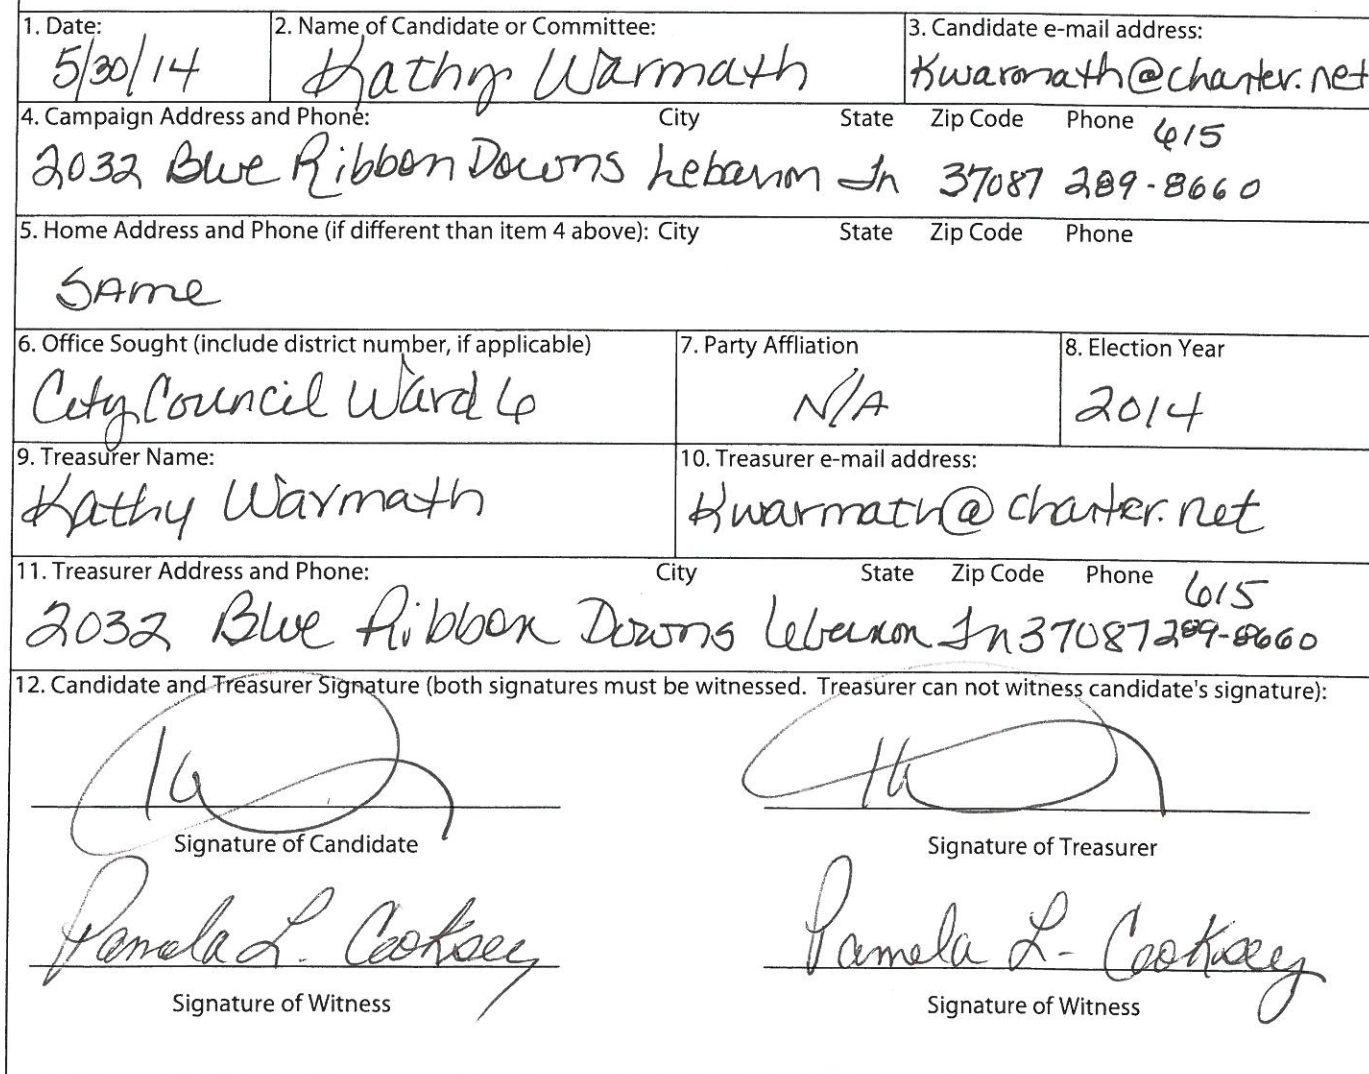 1. Date: 2. Name of Candidate or Committee: 3. Candidate e-mail address:
5/30/14 Kathy Warmath Kwarmath@charter.net
4. Campaign Address and Phone: City State Zip Code Phone 615
2032 Blue Ribbon Downs Lebanon Tn 37087 289-8660
5. Home Address and Phone (if different than item 4 above): City State Zip Code Phone
SAme
6. Office Sought (include district number, if applicable) 7. Party Affliation 8. Election Year
City Council Ward 6 N/A 2014
9. Treasurer Name: 10. Treasurer e-mail address:
Kathy Warmath Kwarmath@charter.net
11. Treasurer Address and Phone: City State Zip Code Phone 615
2032 Blue Ribbon Downs Lebanon Tn 37087 289-8660
12. Candidate and Treasurer Signature (both signatures must be witnessed. Treasurer can not witness candidate's signature):
Signature of Candidate Signature of Treasurer
Pamela L. Cooksey Pamela L. Cooksey
Signature of Witness Signature of Witness